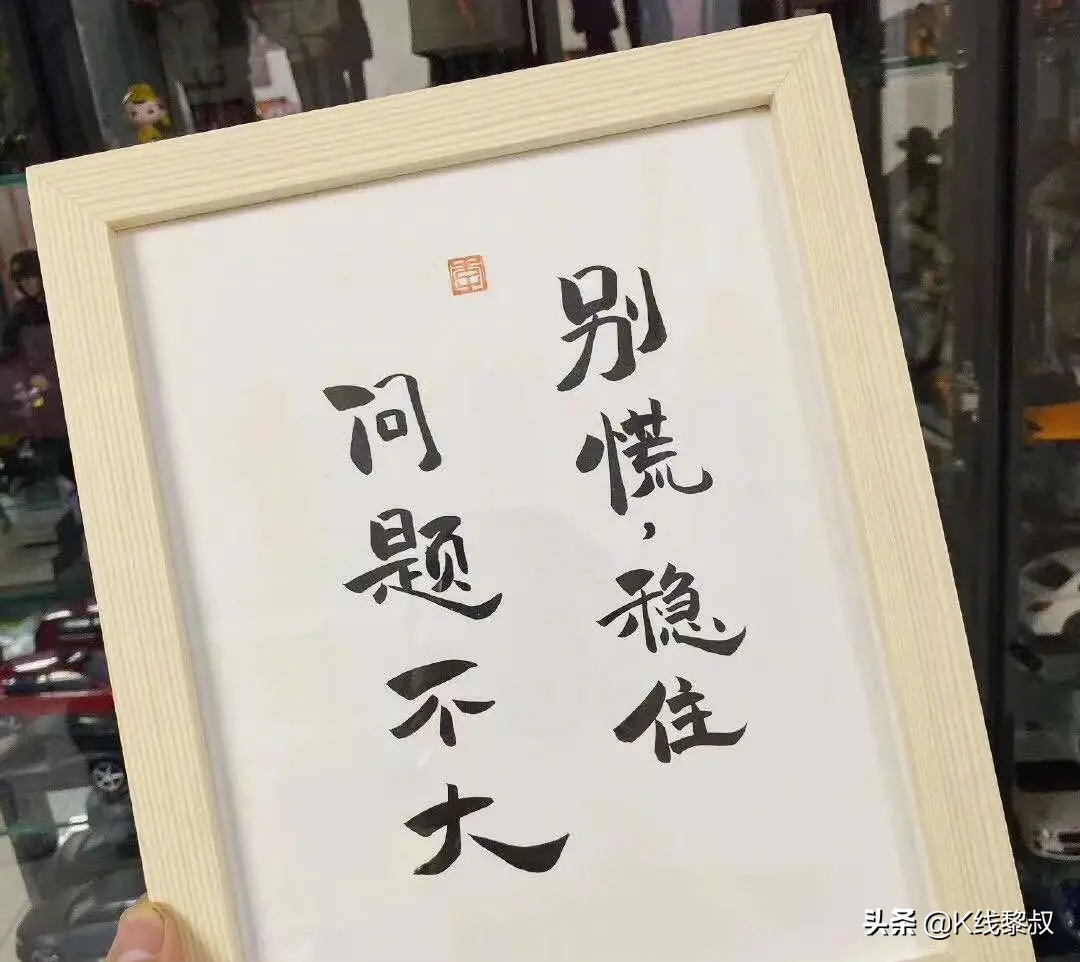 别慌，稳住
问题不大
头条 @K线黎叔